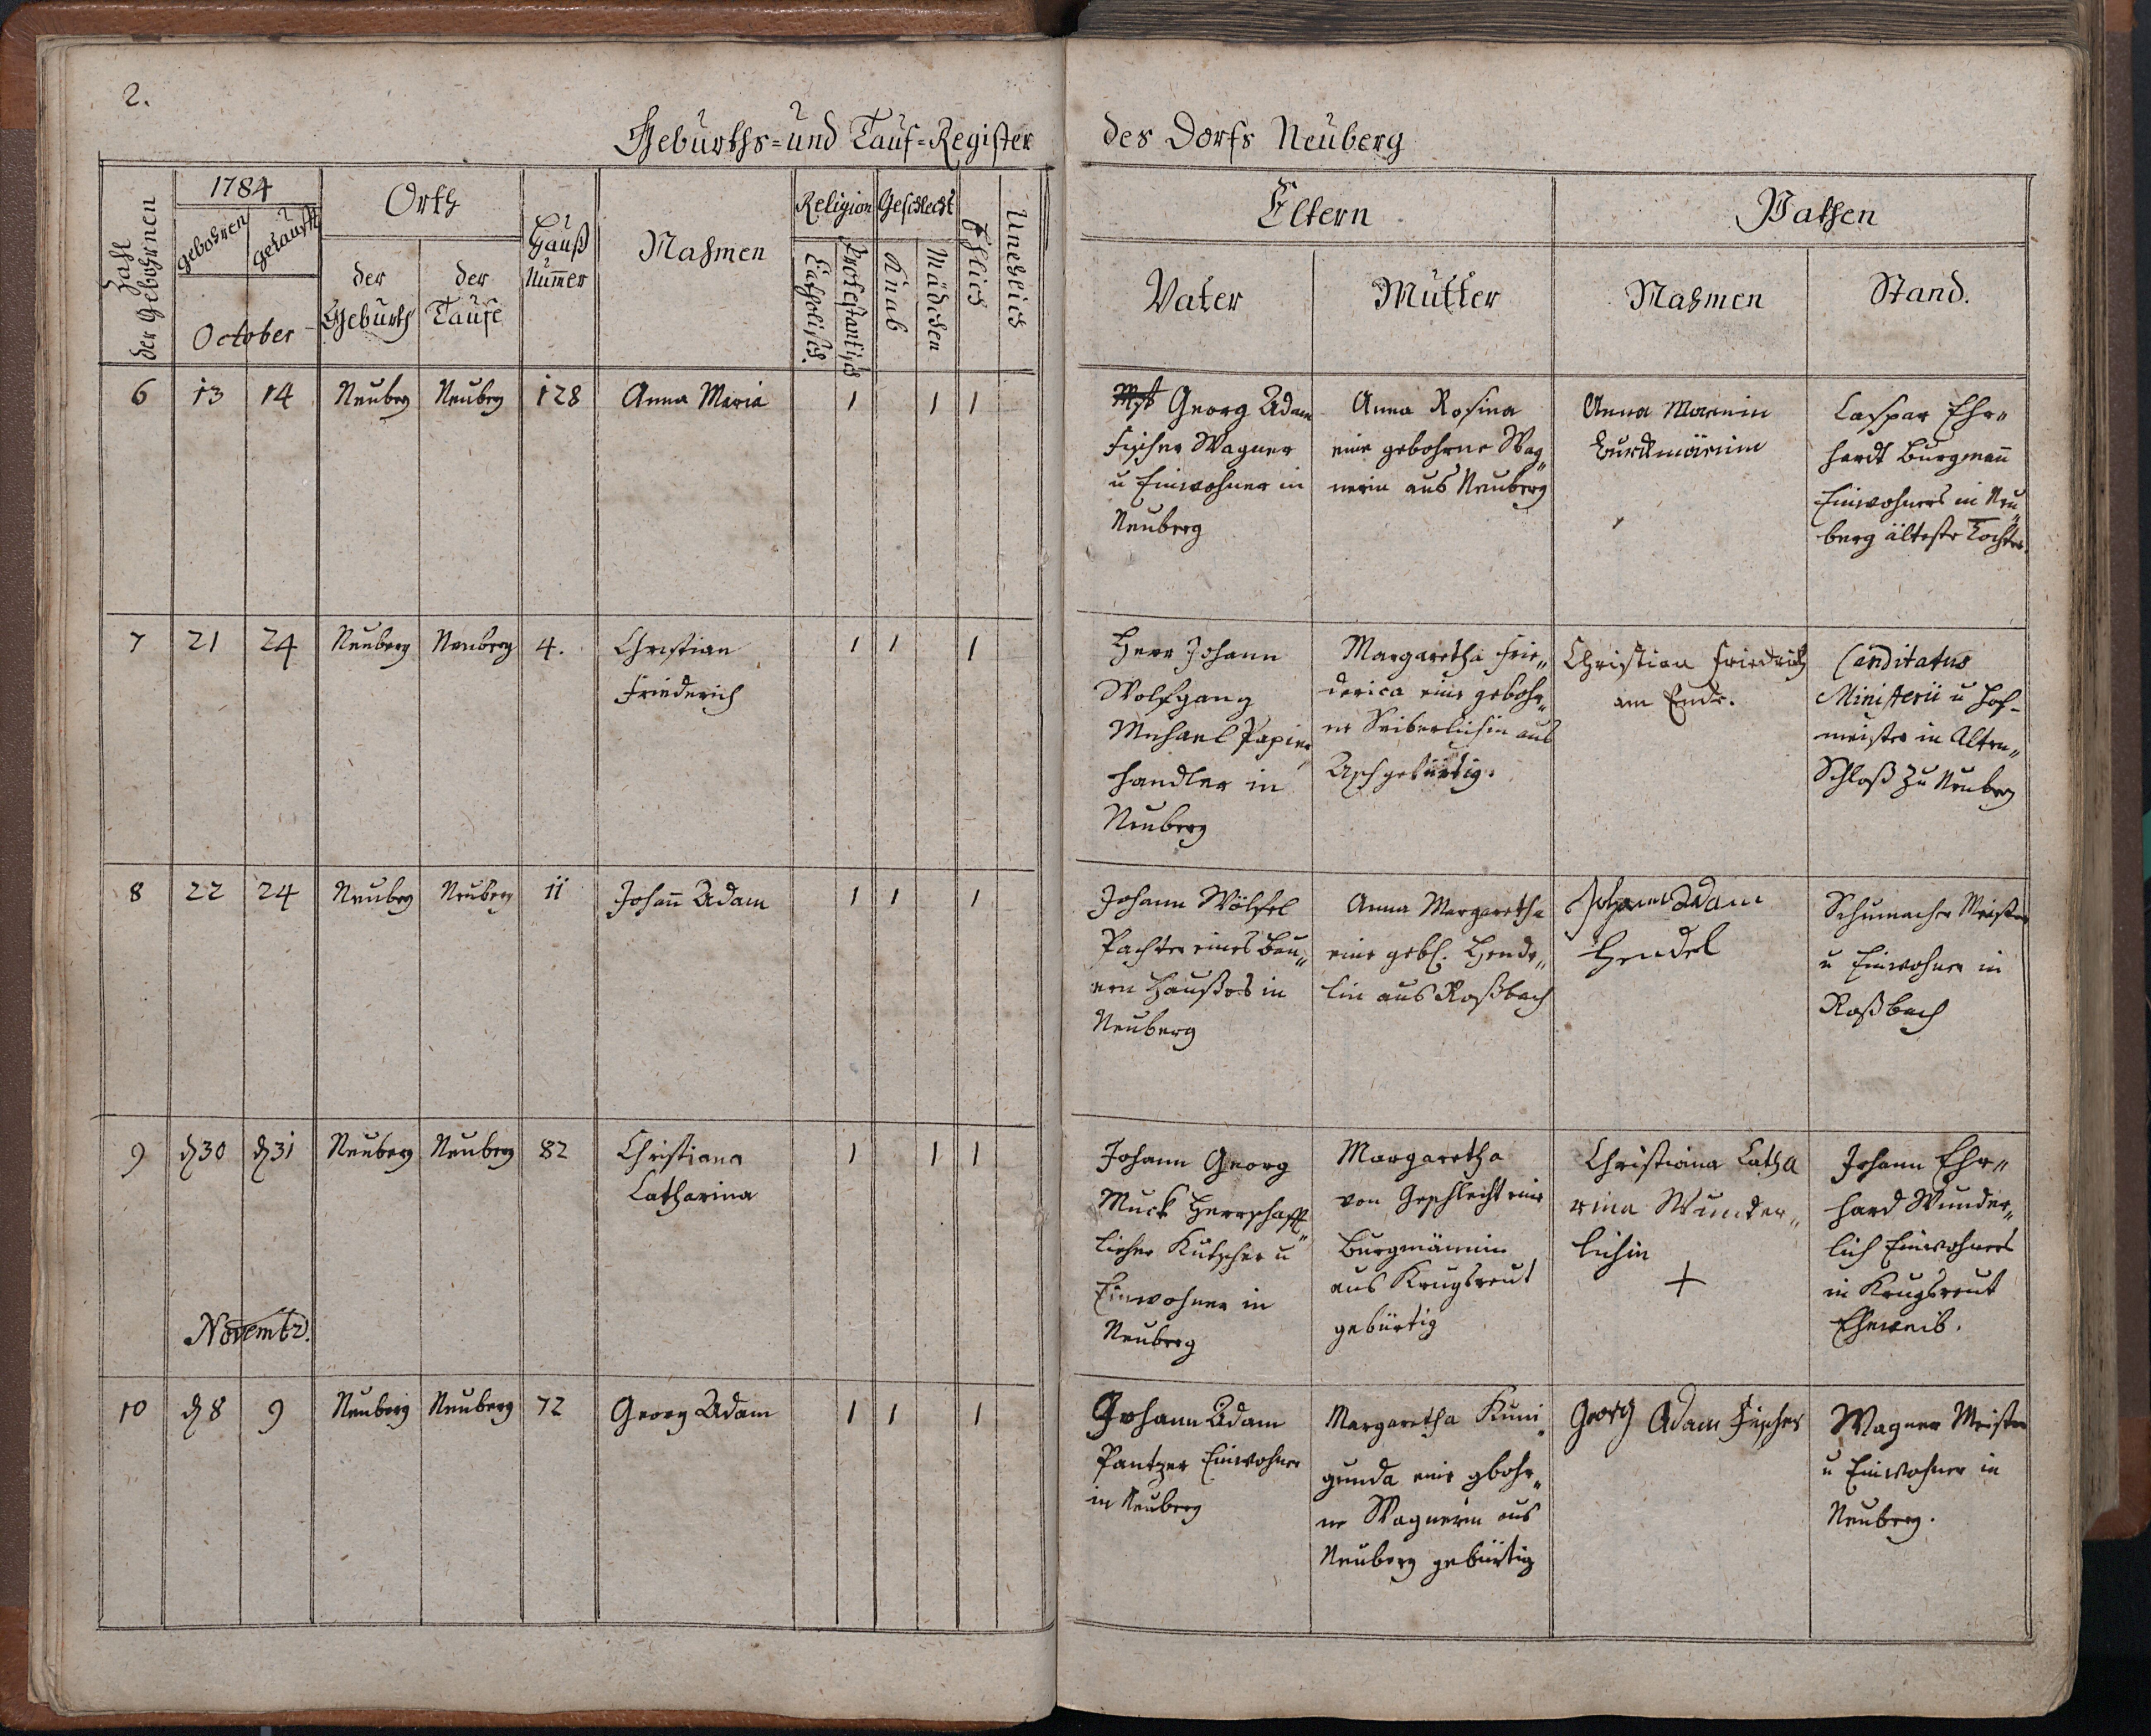 2.
Geburths- und Tauf-Register des Dorfs Neuberg
Zahl der Gebohrnen
1784
gebohren
getaufft
October
Orth
der Geburth
der Taufe
Hauß Num̅er
Nahmen
Religion
Catholisch.
Protestantisch
Geschlecht
Knab
Mädchen
Ehlich
Unehlich
Eltern
Vater
Mutter
Pathen
Nahmen
Stand.
6 13 14 Neuberg Neuberg 128 Anna Maria 1 1 1
Georg Adam
Fischer Wagner
u Einwohner in
Neuberg
Anna Rosina
eine gebohrne Wag„
nerin aus Neuberg
Anna
Caspar Ehr„
hardt Burgman̅
Einwohners in Neu„
berg älteste Tochter.
7 21 24 Neuberg Neuberg 4. Christian
Friederich 1 1 1
Herr Johann
Wolfgang
Michael Papier„
handler in
Neuberg
Margaretha Frie„
derica eine gebohr„
ne Seiberlichin aus
Asch gebürtig.
Christian Friedrich
am Ende.
Canditatus
Ministerii u Hof-
meister in Alten„
Schloß zu Neuberg
8 22 24 Neuberg Neuberg 11 Johan̅ Adam 1 1 1
Johann Wölfel
Pachter eines Bau„
ern Haußes in
Neuberg
Anna Margaretha
eine gebh. Hende„
lin aus Roßbach
Johann Adam
Hendel
Schumacher Meister
u Einwohner in
Roßbach
9 d 30 d 31 Neuberg Neuberg 82 Christiana
Catharina 1 1 1
Johann Georg
Muck Herrschafft„
licher Kutscher u
Einwohner in
Neuberg
Margaretha
von Geschlecht eine
Burgmännin
aus Krugsreut
gebürtig
Christiana Catha
rina Wunder„
lichin
+
Johann Ehr„
hard Wunder„
lich Einwohners
in Krugsreut
Eheweib.
Novembr.
10 d 8 9 Neuberg Neuberg 72 Georg Adam 1 1 1
Johann Adam
Pantzer Einwohner
in Neuberg
Margaretha Kuni„
gunda eine gbohr„
ne Wagnerin aus
Neuberg gebürtig
Georg Adam Fischer
Wagner Meister
u Einwohner in
Neuberg.